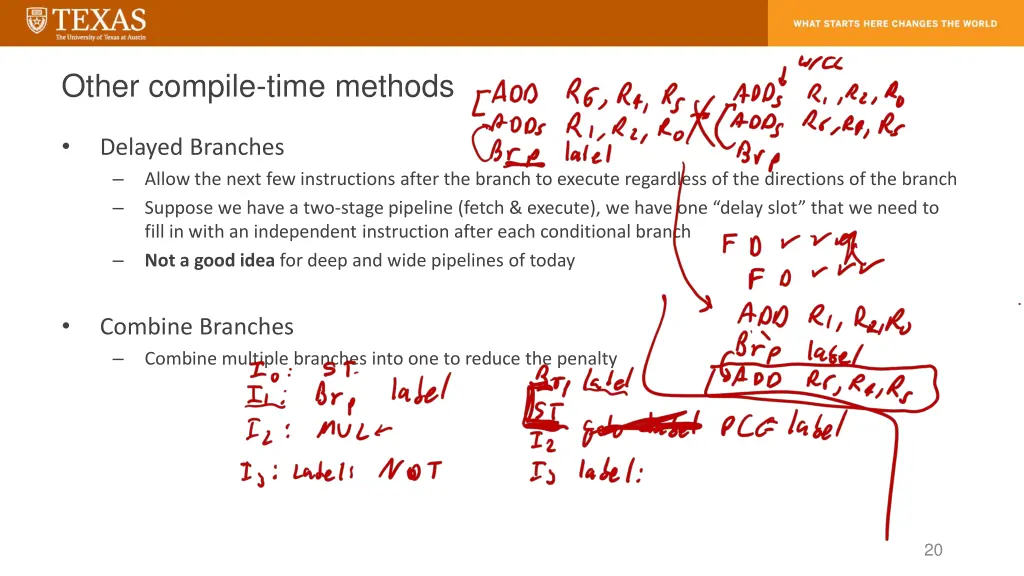 TEXAS
The University of Texas at Austin
WHAT STARTS HERE CHANGES THE WORLD
Other compile-time methods
• Delayed Branches
– Allow the next few instructions after the branch to execute regardless of the directions of the branch
– Suppose we have a two-stage pipeline (fetch & execute), we have one “delay slot” that we need to
fill in with an independent instruction after each conditional branch
– Not a good idea for deep and wide pipelines of today
• Combine Branches
– Combine multiple branches into one to reduce the penalty
ADD R6, R4, R5
ADDs R1, R2, R0
Brp label
ADDs R1, R2, R0
ADDs R6, R4, R5
Brp
F D
F D
ADD R1, R2, R0
Brp label
ADD R6, R4, R5
I0: ST.
I1: Brp label
I2: MUL
I3: Label: NOT
Brp label
ST
I2 label PC label
I3 label:
20